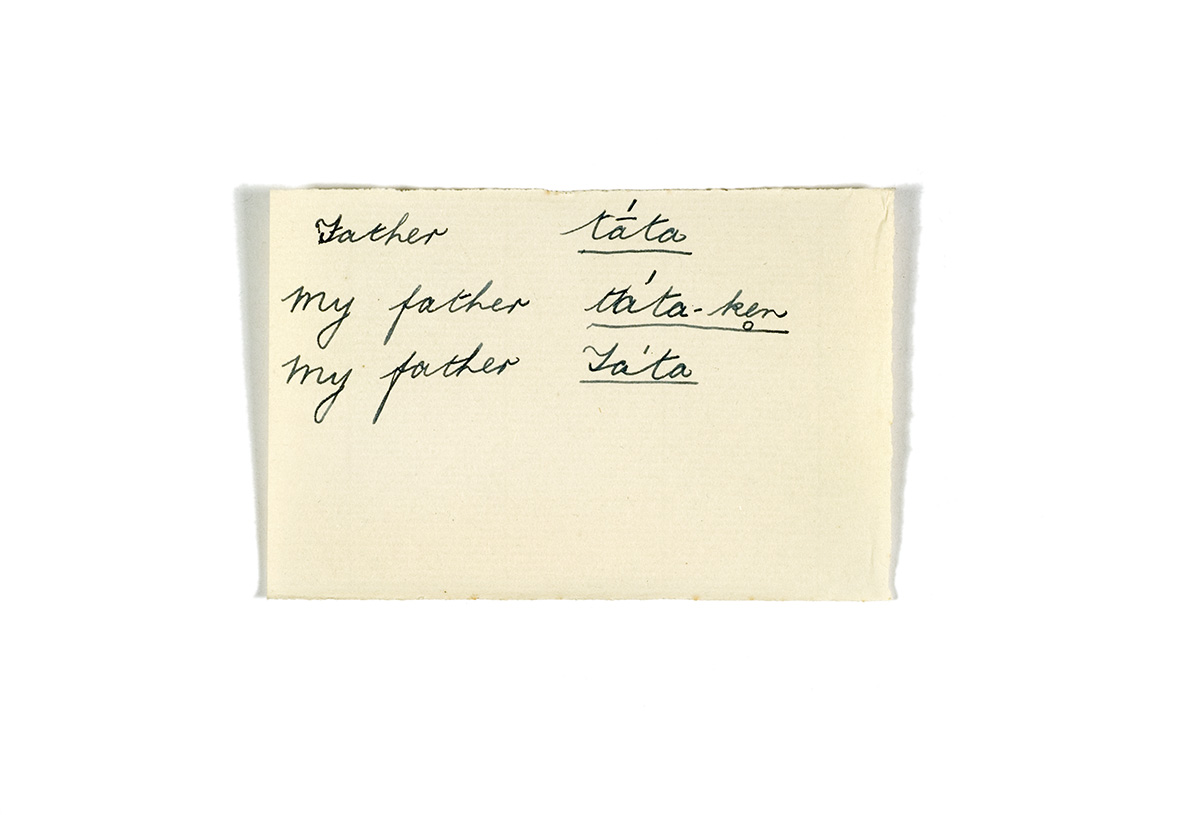 Father tā́ta
my father táta-ke̥n
my father Táta